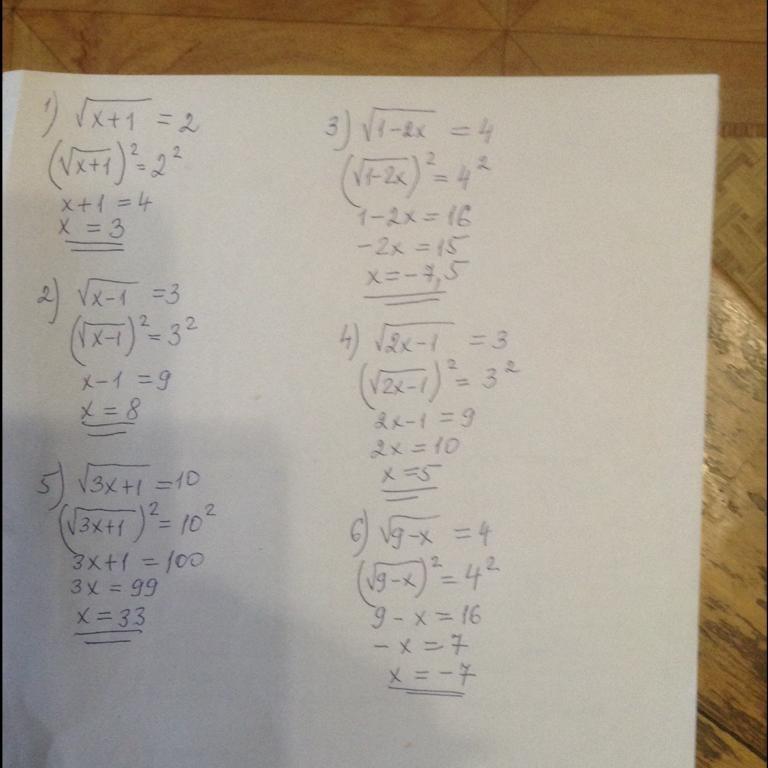 1) √(x+1) = 2
(√(x+1))² = 2²
x+1 = 4
x = 3
2) √(x-1) = 3
(√(x-1))² = 3²
x-1 = 9
x = 8
5) √(3x+1) = 10
(√(3x+1))² = 10²
3x+1 = 100
3x = 99
x = 33
3) √(1-2x) = 4
(√(1-2x))² = 4²
1-2x = 16
-2x = 15
x = -7,5
4) √(2x-1) = 3
(√(2x-1))² = 3²
2x-1 = 9
2x = 10
x = 5
6) √(9-x) = 4
(√(9-x))² = 4²
9-x = 16
-x = 7
x = -7